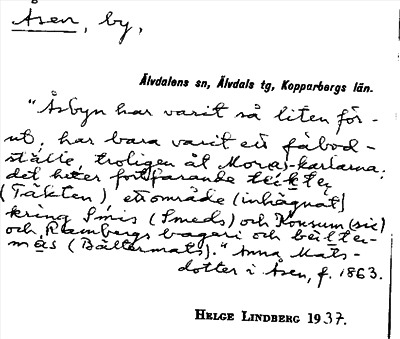 Åsen, by,
Älvdalens sn, Älvdals tg, Kopparbergs län.
"Åsbyn har varit så liten för-
ut, har bara varit ett fäbod-
ställe, troligen åt Moras-karlarna;
det heter fortfarande
(Täkten), ett område (inhägnat)
kring Smis (Smeds) och Konsum (sic)
och Rambergs bageri och
mås (Bältermats)." Anna Mats-
dotter i Åsen, f. 1863.
HELGE LINDBERG 1937.